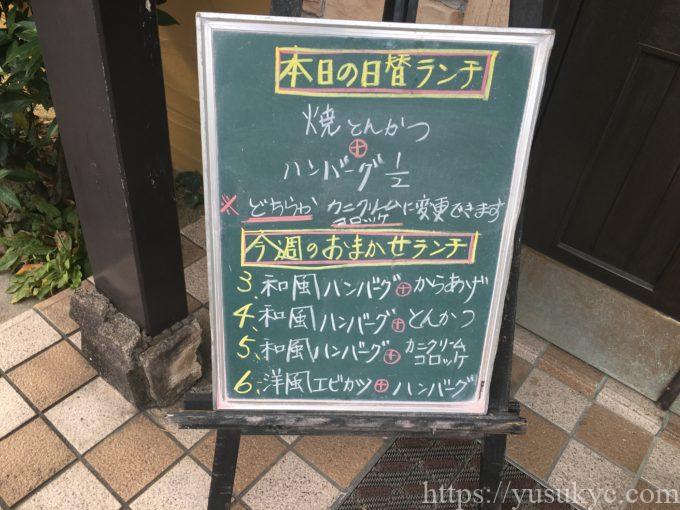 本日の日替ランチ
焼とんかつ
+
ハンバーグ1/2
※どちらか カニクリームコロッケに変更できます
今週のおまかせランチ
3、和風ハンバーグ+からあげ
4、和風ハンバーグ+とんかつ
5、和風ハンバーグ+カニクリームコロッケ
6、洋風エビカツ+ハンバーグ
https://yusukyc.com